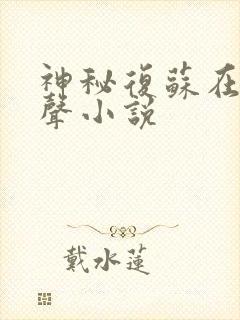 神秘復蘇在
聲小説
戴水蓮